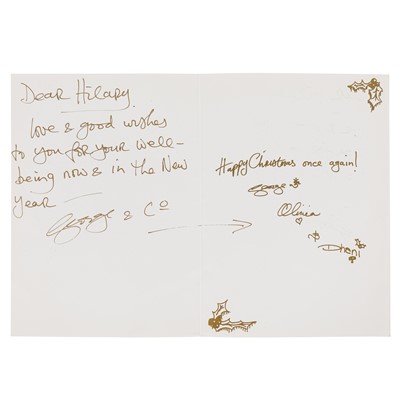 Dear Hilary,
love & good wishes
to you for your well-
being now & in the New
Year —
George & Co
Happy Christmas once again!
George
Olivia
Dhani